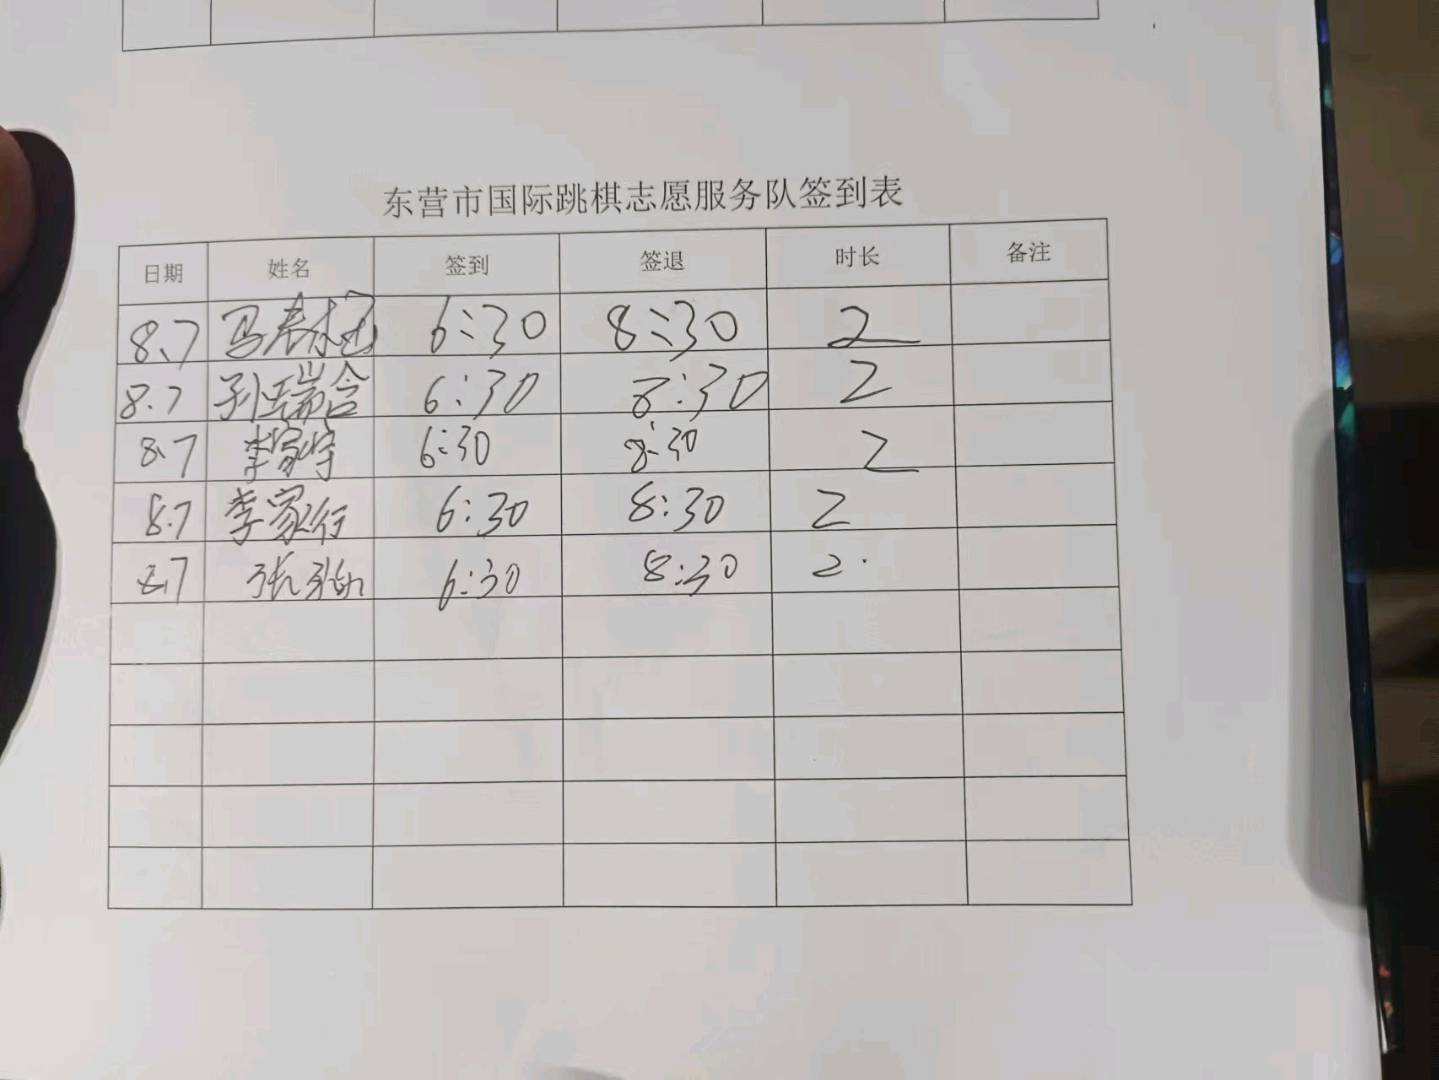 东营市国际跳棋志愿服务队签到表
日期 姓名 签到 签退 时长 备注
8.7 马春 6:30 8:30 2
8.7 孙瑞含 6:30 8:30 2
8.7 李家宇 6:30 8:30 2
8.7 李家行 6:30 8:30 2
8.7 张 6:30 8:30 2